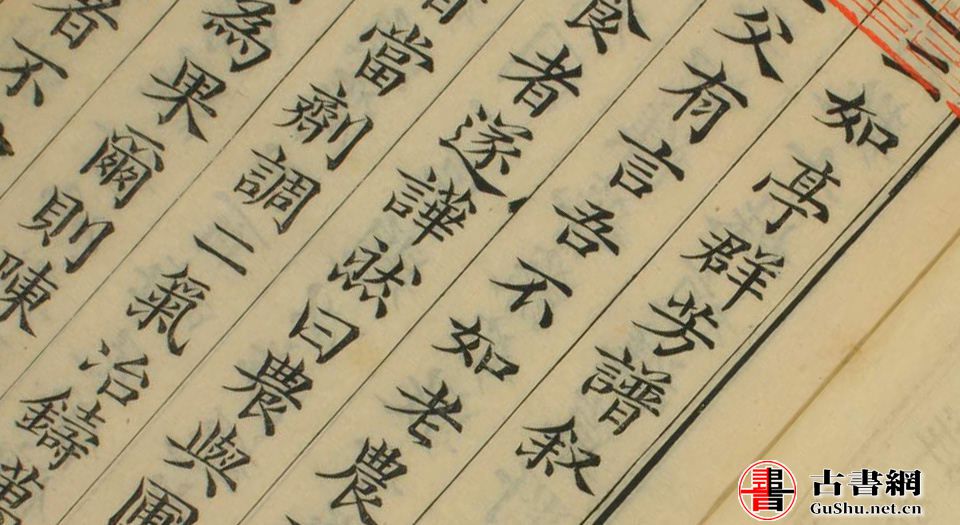 二如亭群芳譜叙
父有言吾不如老農
食者遂譁然曰農與圃
當劑調二氣冶鑄萬
為果爾則陳
者不
古書網
GuShu.net.cn